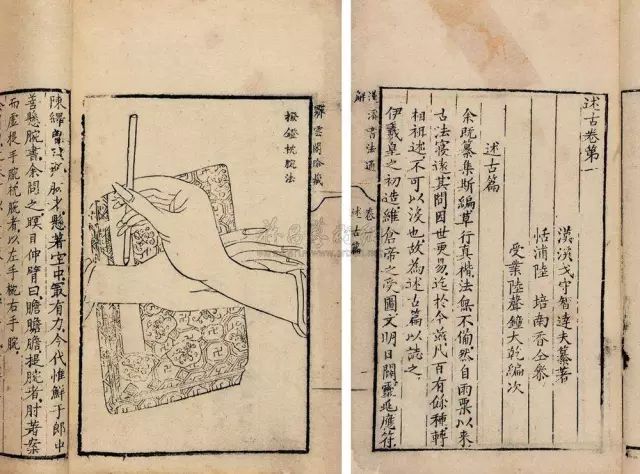 述古卷第一
漢溪戈守智達夫纂著
恬浦陸培南香仝參
受業陸聲鐘大乾編次
述古篇
余既纂集斯編草行真楷法無不備然自雨粟以來
古法寖遠其間因世更易迄於今茲凡百有餘種轉
相祖述不可以沒也故為述古篇以誌之
伊羲皇之初造維倉帝之受圖文明日闢靈兆應符
漢溪書法通解 卷一 述古篇
雲閣珍藏
撥鐙枕腕法
陳繹懸著空中最有力今代惟鮮于郎中
善懸腕書余問之瞑目伸臂曰膽膽膽提腕者肘著案
而虛提手腕枕腕者以左手枕右手腕